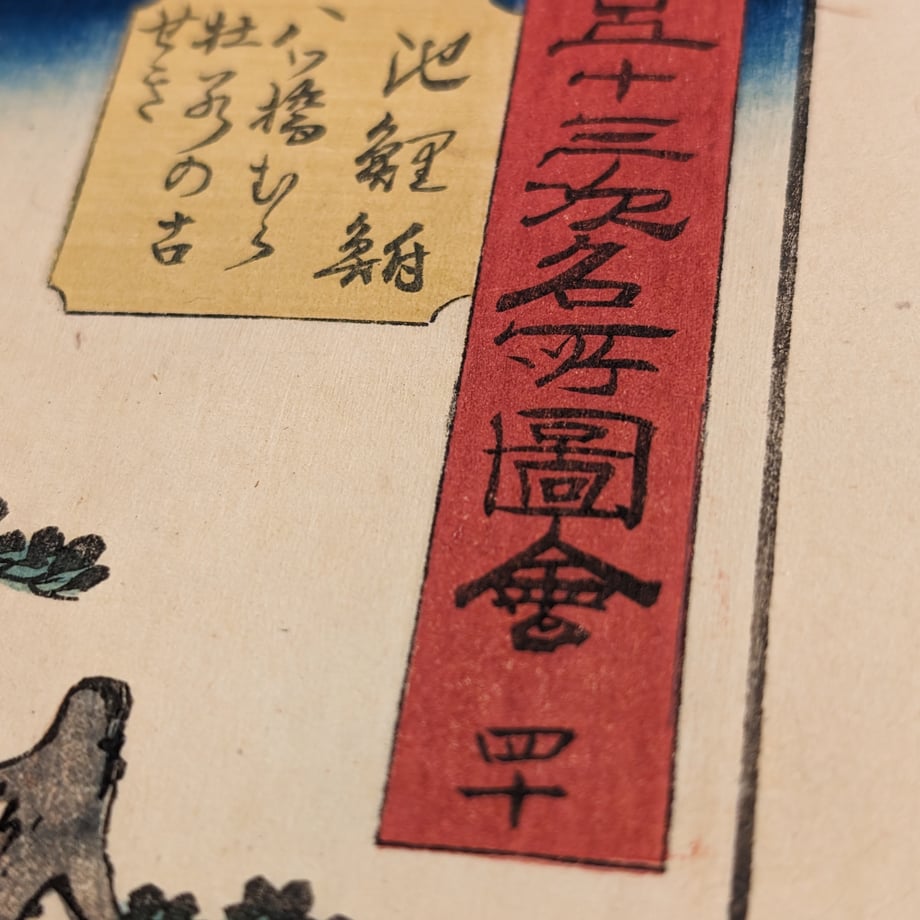 五十三次名所圖會 四十
池鯉鮒
八ツ橋むら
杜若の古
せき